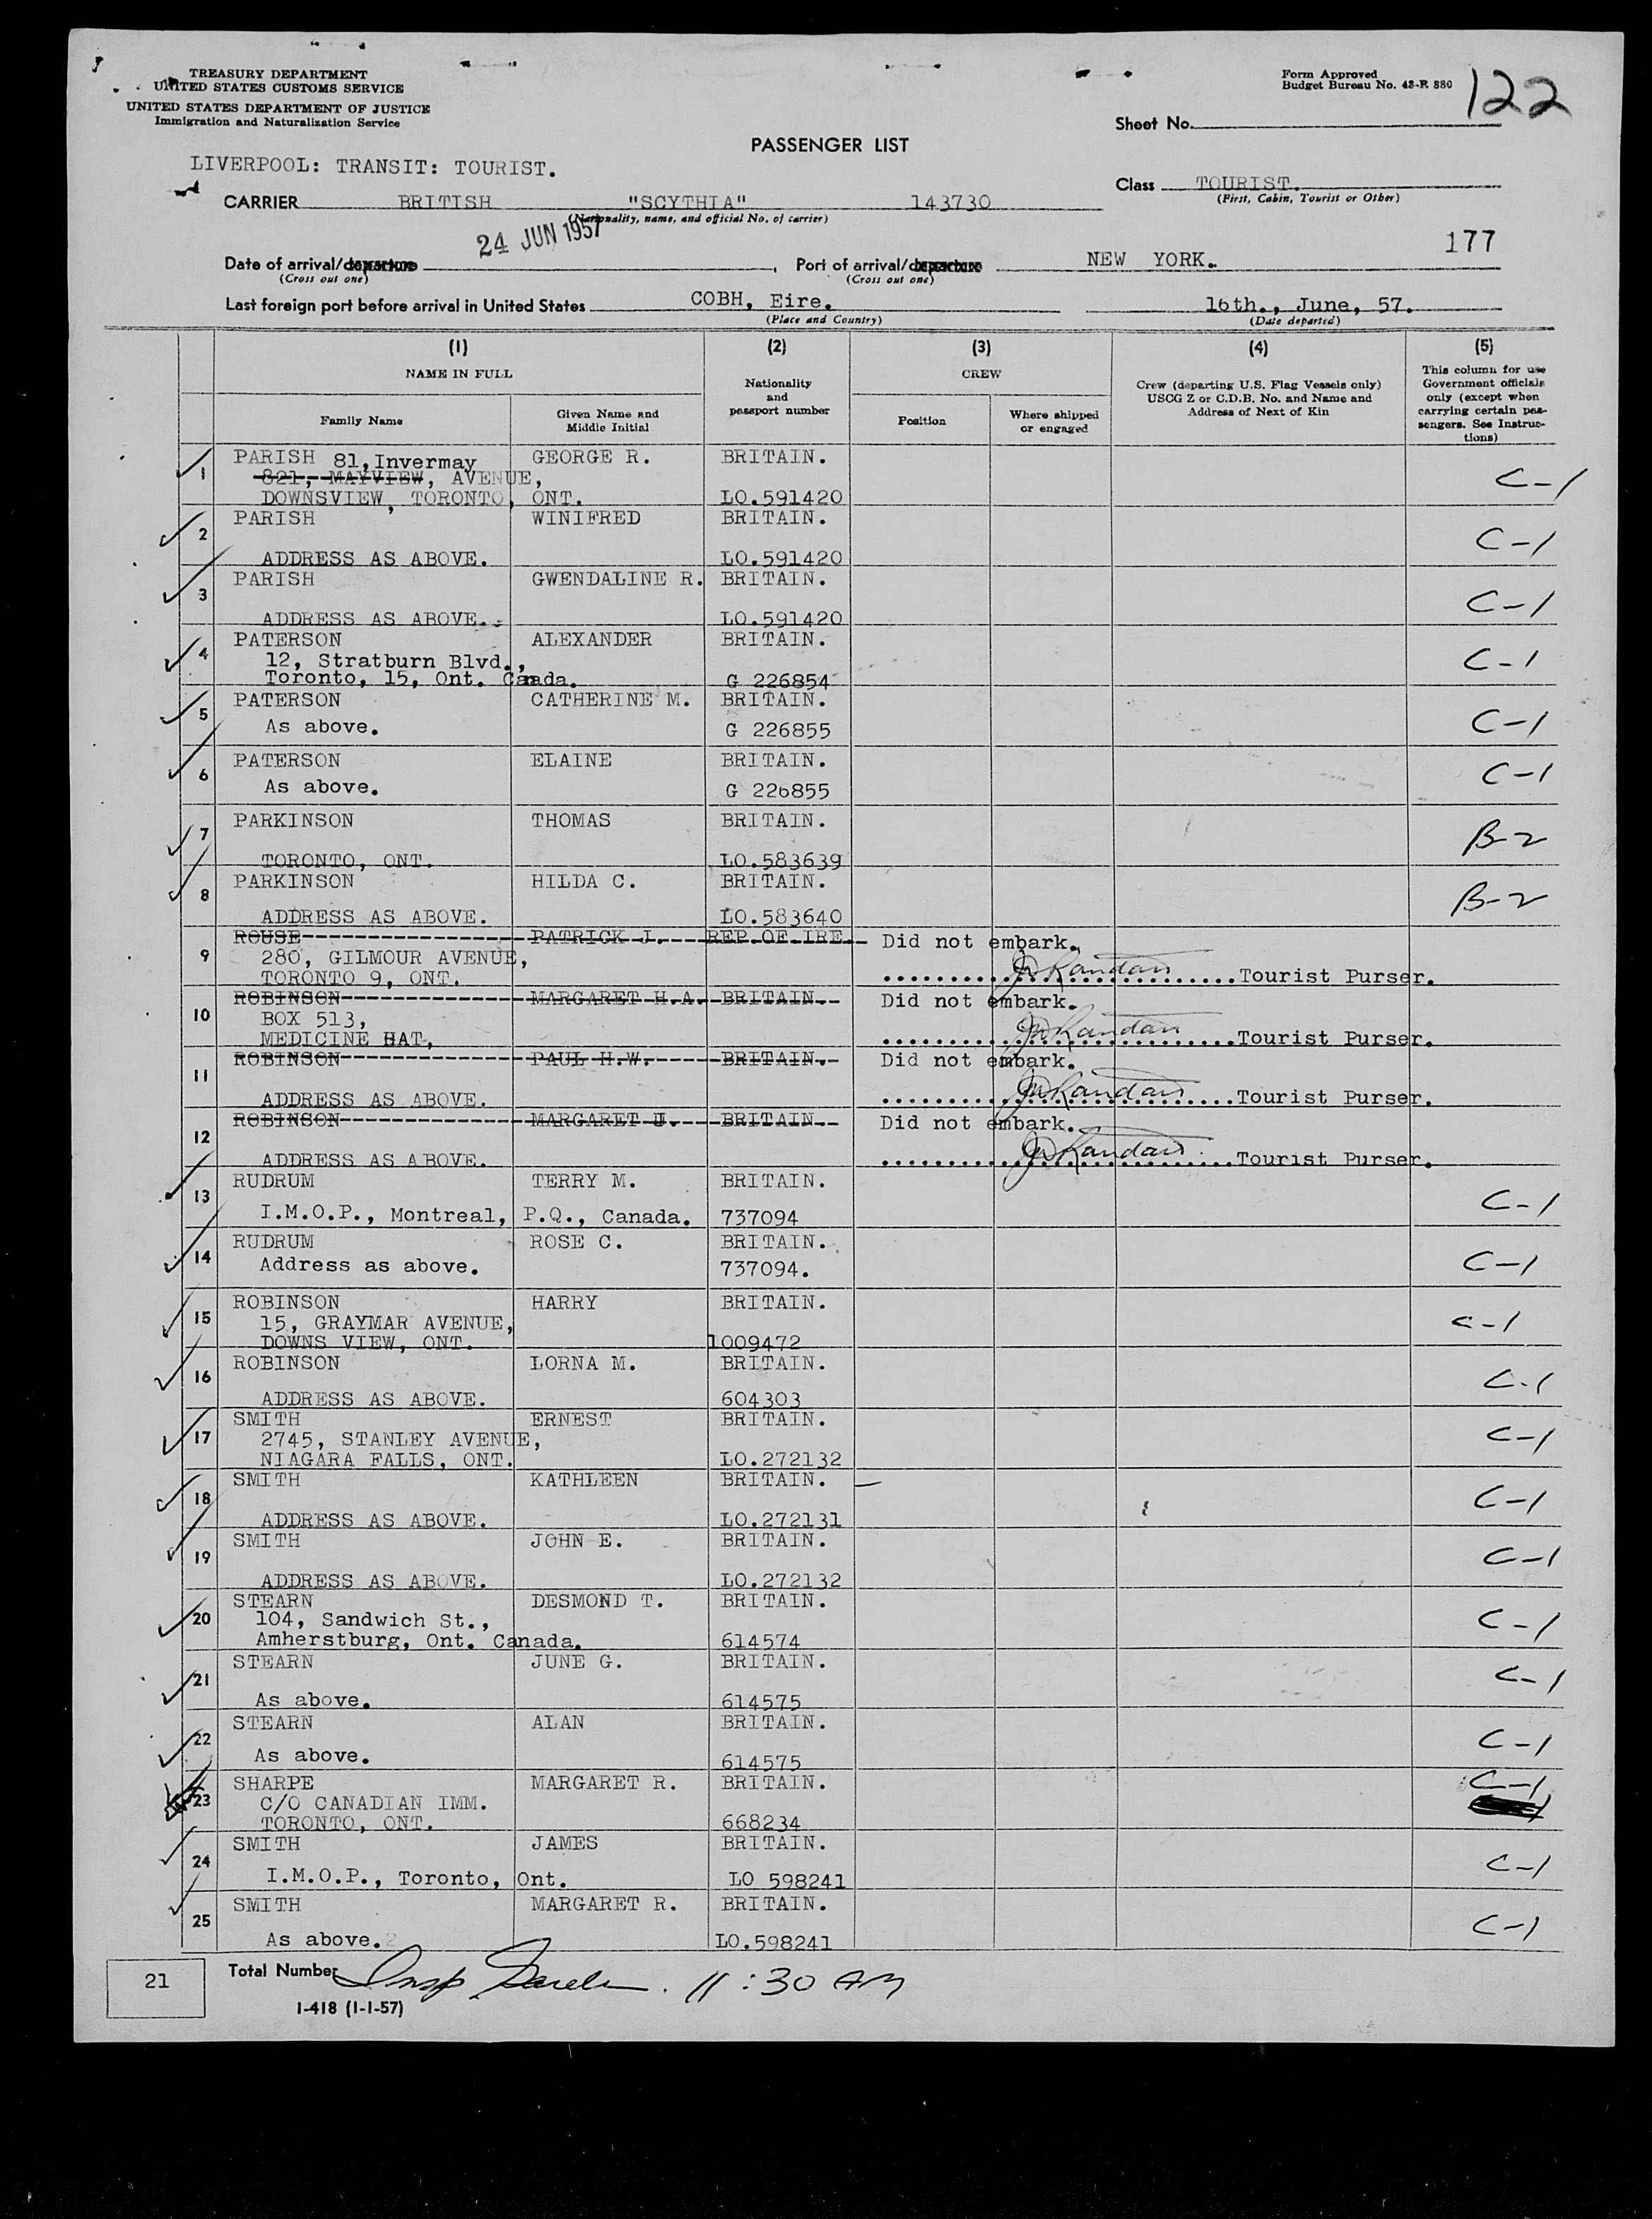 TREASURY DEPARTMENT
UNITED STATES CUSTOMS SERVICE
UNITED STATES DEPARTMENT OF JUSTICE
Immigration and Naturalization Service
Form Approved
Budget Bureau No. 43-R 880
122
Sheet No.
PASSENGER LIST
LIVERPOOL: TRANSIT: TOURIST.
Class TOURIST.
(First, Cabin, Tourist or Other)
CARRIER BRITISH "SCYTHIA" 143730
(Nationality, name, and official No. of carrier)
24 JUN 1957
177
Date of arrival/departure Port of arrival/departure NEW YORK.
(Cross out one) (Cross out one)
Last foreign port before arrival in United States COBH, Eire. 16th., June, 57.
(Place and Country) (Date departed)
(1) (2) (3) (4) (5)
NAME IN FULL
Nationality and passport number
CREW
Crew (departing U.S. Flag Vessels only) USCG Z or C.D.B. No. and Name and Address of Next of Kin
This column for use Government officials only (except when carrying certain passengers. See Instructions)
Family Name
Given Name and Middle Initial
Position
Where shipped or engaged
1 PARISH 81, Invermay GEORGE R. BRITAIN. C-1
821, MAYVIEW, AVENUE,
DOWNSVIEW, TORONTO, ONT. LO.591420
2 PARISH WINIFRED BRITAIN. C-1
ADDRESS AS ABOVE. LO.591420
3 PARISH GWENDALINE R. BRITAIN. C-1
ADDRESS AS ABOVE. LO.591420
4 PATERSON ALEXANDER BRITAIN. C-1
12, Stratburn Blvd.,
Toronto, 15, Ont. Canada. G 226854
5 PATERSON CATHERINE M. BRITAIN. C-1
As above. G 226855
6 PATERSON ELAINE BRITAIN. C-1
As above. G 226855
7 PARKINSON THOMAS BRITAIN. B-2
TORONTO, ONT. LO.583639
8 PARKINSON HILDA C. BRITAIN. B-2
ADDRESS AS ABOVE. LO.583640
9 ROUSE PATRICK J. REP.OF.IRE. Did not embark.
280, GILMOUR AVENUE,
TORONTO 9, ONT. Tourist Purser.
10 ROBINSON MARGARET H.A. BRITAIN. Did not embark.
BOX 513,
MEDICINE HAT, Tourist Purser.
11 ROBINSON PAUL H.W. BRITAIN. Did not embark.
ADDRESS AS ABOVE. Tourist Purser.
12 ROBINSON MARGARET U. BRITAIN. Did not embark.
ADDRESS AS ABOVE. Tourist Purser.
13 RUDRUM TERRY M. BRITAIN. C-1
I.M.O.P., Montreal, P.Q., Canada. 737094
14 RUDRUM ROSE C. BRITAIN. C-1
Address as above. 737094.
15 ROBINSON HARRY BRITAIN. C-1
15, GRAYMAR AVENUE,
DOWNS VIEW, ONT. 1009472
16 ROBINSON LORNA M. BRITAIN. C-1
ADDRESS AS ABOVE. 604303
17 SMITH ERNEST BRITAIN. C-1
2745, STANLEY AVENUE,
NIAGARA FALLS, ONT. LO.272132
18 SMITH KATHLEEN BRITAIN. C-1
ADDRESS AS ABOVE. LO.272131
19 SMITH JOHN E. BRITAIN. C-1
ADDRESS AS ABOVE. LO.272132
20 STEARN DESMOND T. BRITAIN. C-1
104, Sandwich St.,
Amherstburg, Ont. Canada. 614574
21 STEARN JUNE G. BRITAIN. C-1
As above. 614575
22 STEARN ALAN BRITAIN. C-1
As above. 614575
23 SHARPE MARGARET R. BRITAIN. C-1
C/O CANADIAN IMM.
TORONTO, ONT. 668234
24 SMITH JAMES BRITAIN. C-1
I.M.O.P., Toronto, Ont. LO 598241
25 SMITH MARGARET R. BRITAIN. C-1
As above. LO.598241
21 Total Number Insp 11:30 AM
I-418 (1-1-57)